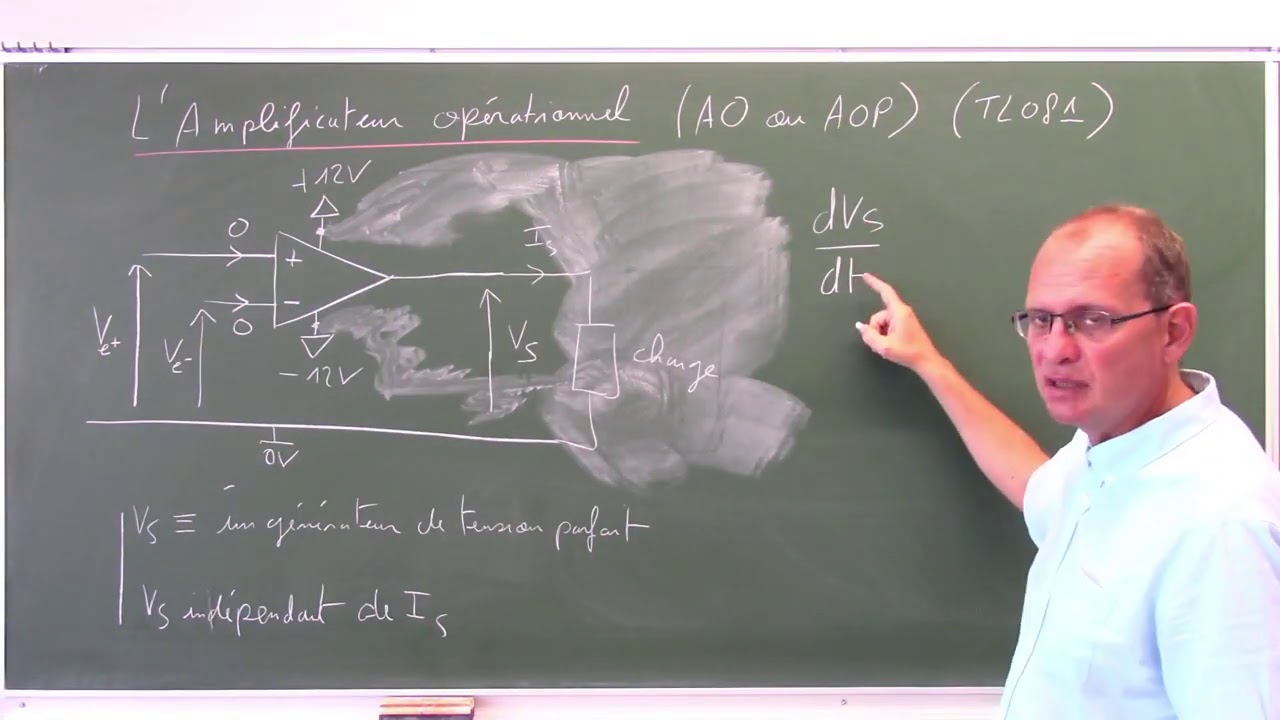 L'Amplificateur opérationnel (AO ou AOP) (TL081)
+12V
dVs
dt
0
Is
+
Ve+
-
0
Ve-
Vs
charge
-12V
0V
Vs ≡ un générateur de tension parfait
Vs indépendant de Is